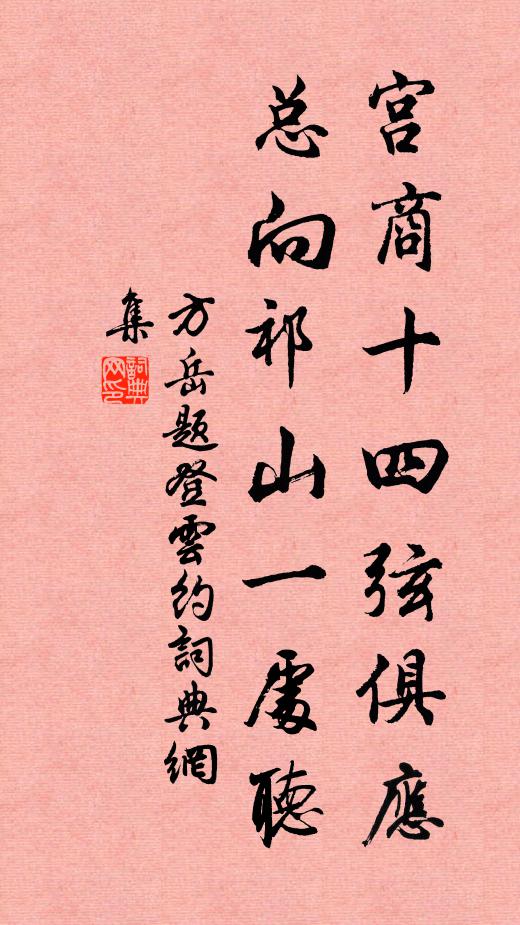 宫商十四弦俱應
总向祁山一處聽
方岳题登雲約詞典網
集
詞典
网印